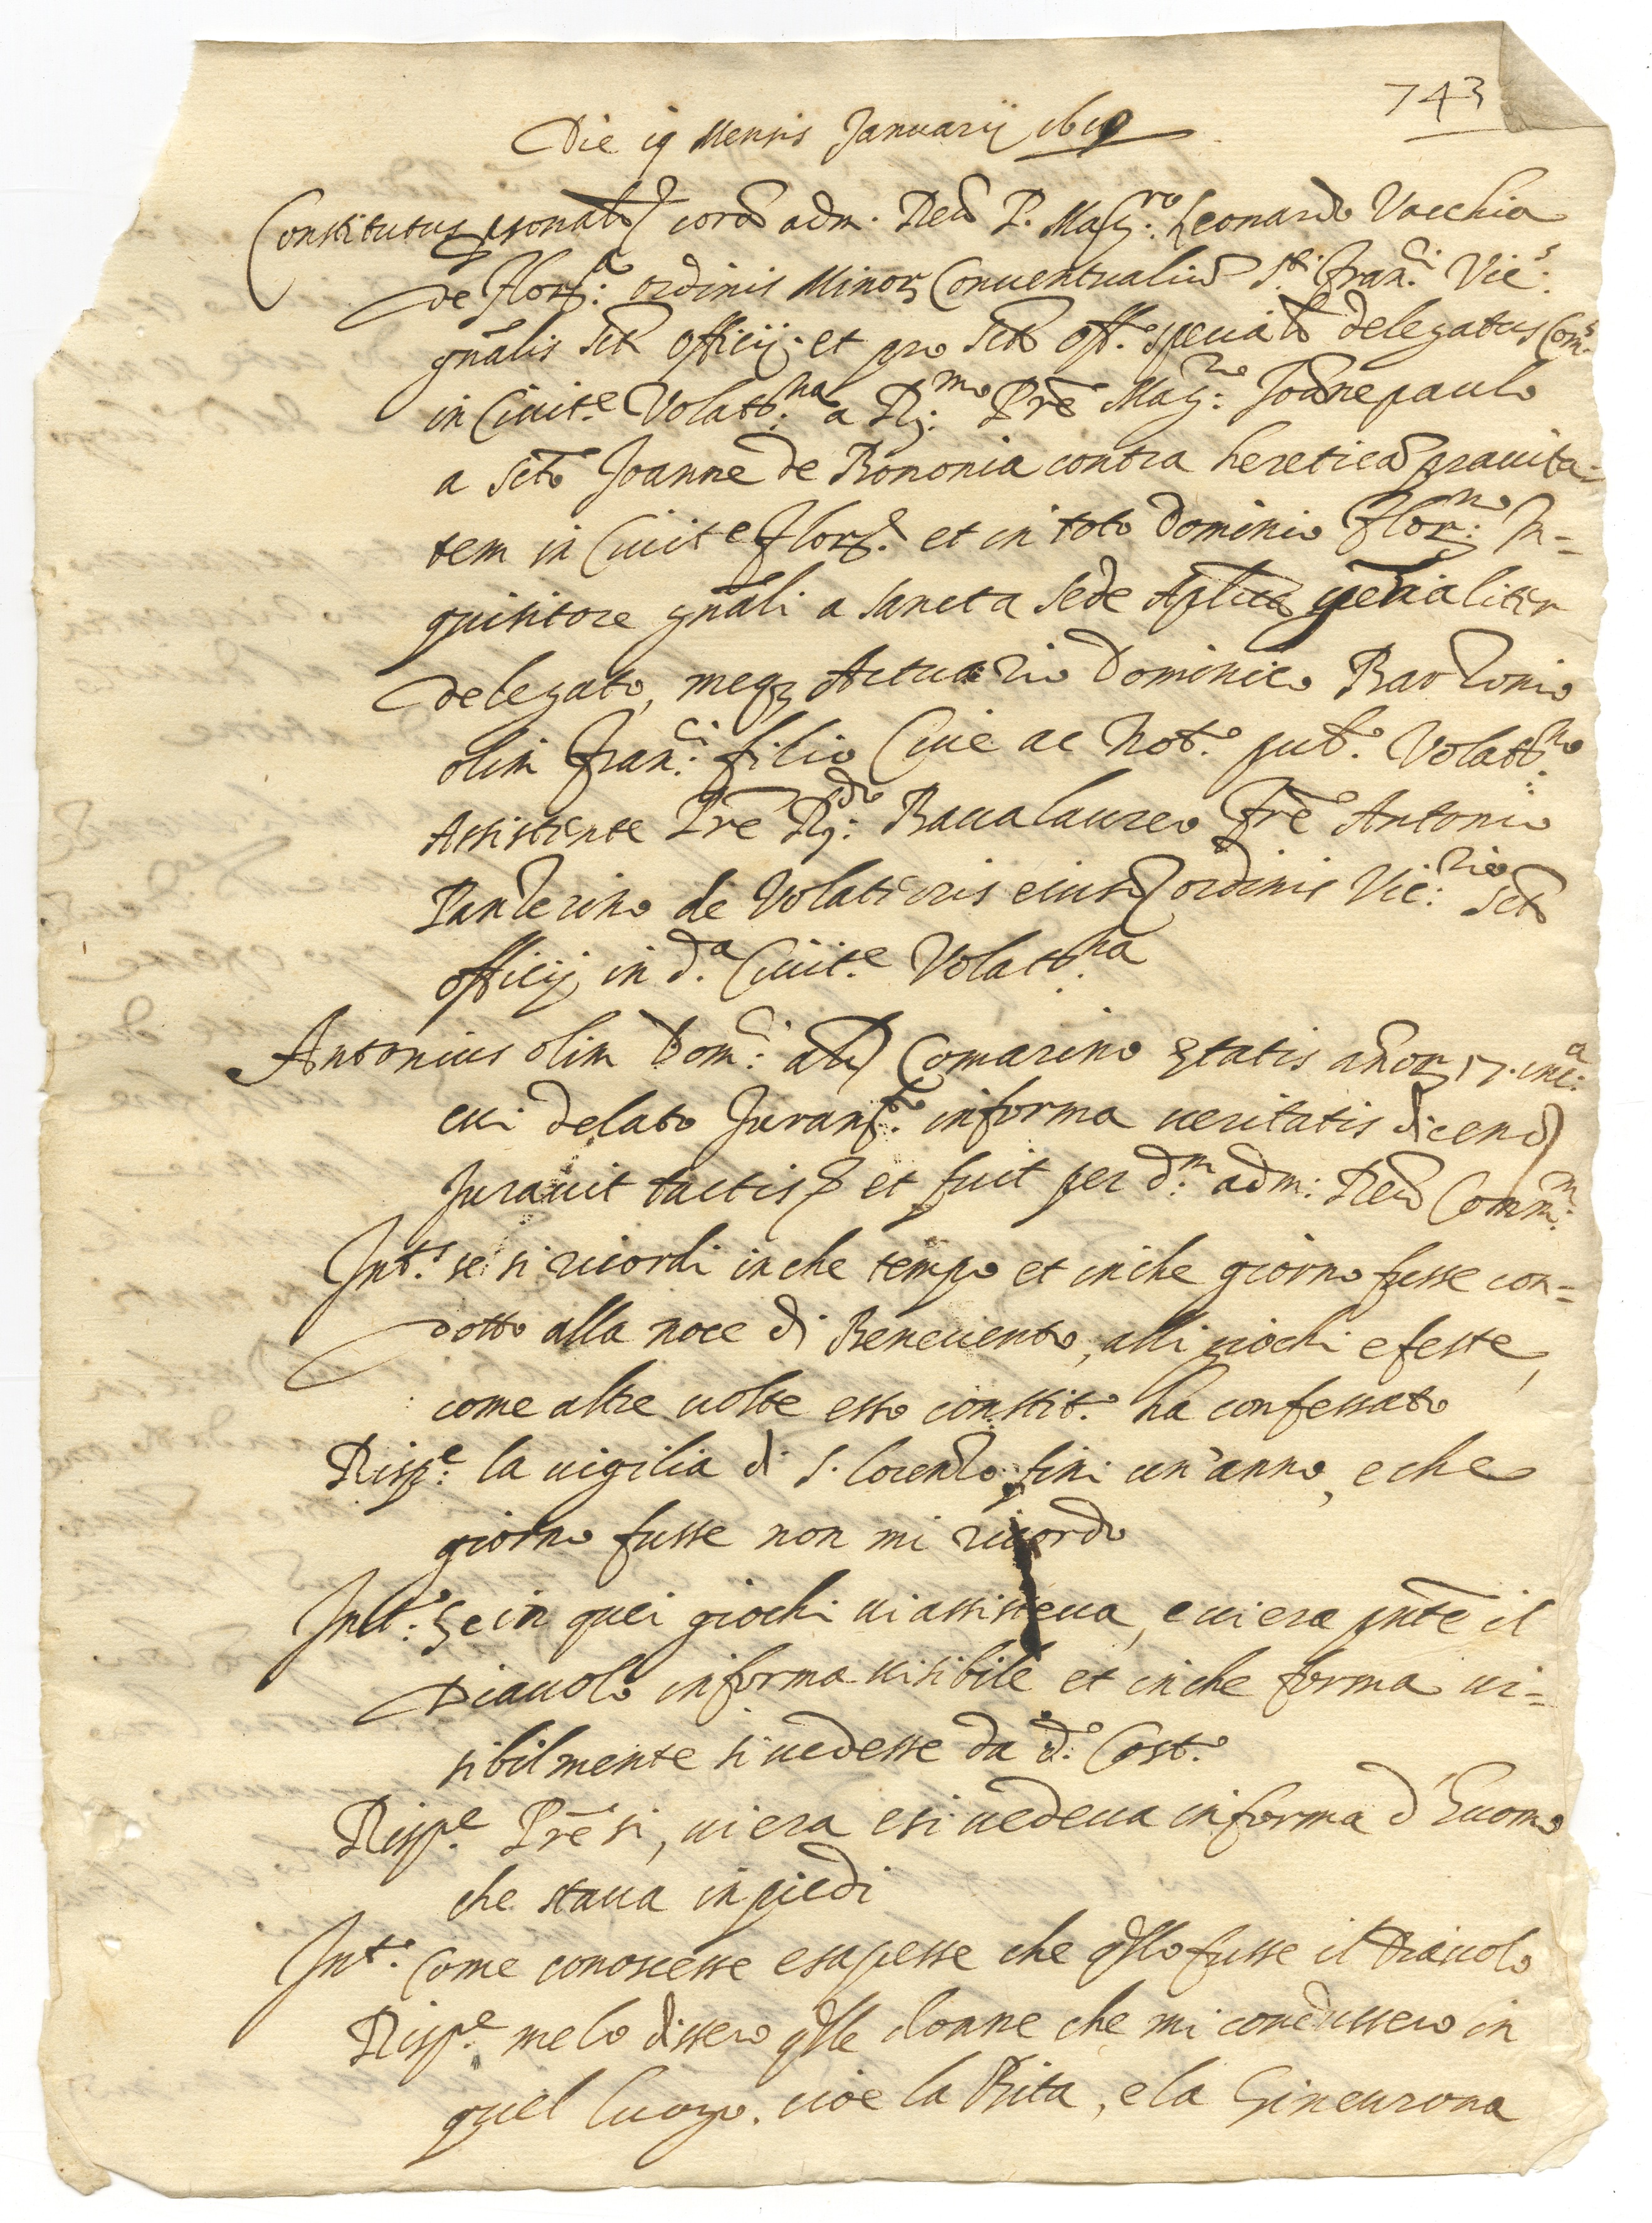 743
Die 19 Mensis Januarij 1619
Constitutus personalr corã adm. Reũ P. Magro: Leonardo Vacchia
de Flor.a ordinis Minor Conuentualiũ S.ti Fran.ci Vic.s
gñalis Sti officij. et pro Sto off.o specialr delegatus Com.s
in Ciuit.e Volatt.na a R.mo Prẽ Mag.ro Joãnepaulo
a Sctõ Joanne de Bononia contra hereticã prauita=
tem in Ciuit.e Flor. et in toto Dominio Flor.no In=
quisitore gñali a sancta sede Aplica specialiter
delegato, meq Actuario Dominico Bartonio
olim Fran.ci filio Ciue ac Not.o pub.o Volatt.no
Assistente Prẽ R.do Baccalaureo Frẽ Antonio
de Volaterris eiusd ordinis Vic.rio Sti
officij in d.a Ciuit.e Volatt.na
Antonius olim Dom.ci als Comarino ętatis añor 17. inc.a
cui delato Juram.to in forma ueritatis dicend
Jurauit tactis et fuit per d.m adm: Reũ Comm.m
Int.s se si ricordi in che tempo et in che giorno fusse con=
dotto alla noce di Beneuento, alli giochi e feste,
come altre uolte esso constit.o ha confessato
Risp.e la uigilia di S. Lorenzo finì un'anno, e che
giorno fusse non mi ricordo
Int.o Se in quei giochi ui assisteua, e ui era pñte il
Diauolo in forma uisibile et in che forma ui=
sibilmente si uedesse da d.o Cost.o
Risp.e Prẽ si, ui era e si uedeua in forma d'huomo
che staua in piedi
Int.o Come conoscesse e sapesse che qllo fusse il Diauolo
Risp.e me lo dissero qlle donne che mi condussero in
quel luogo. cioe la Rita, e la Gineurona